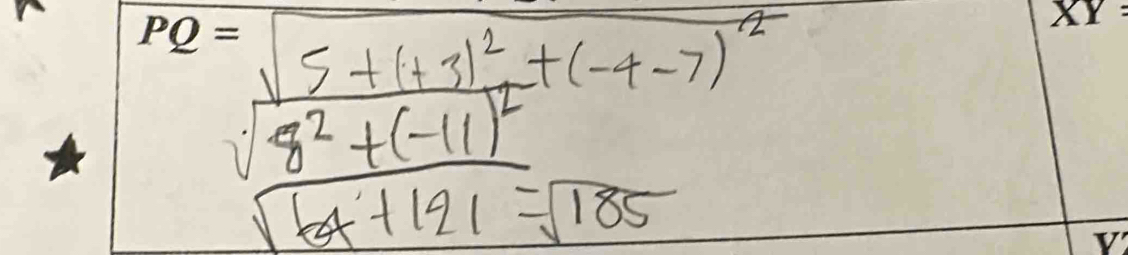 PQ = √5+(+3)² + (-4-7)²
XY =
√8² + (-11)²
√64 + 121 = √185